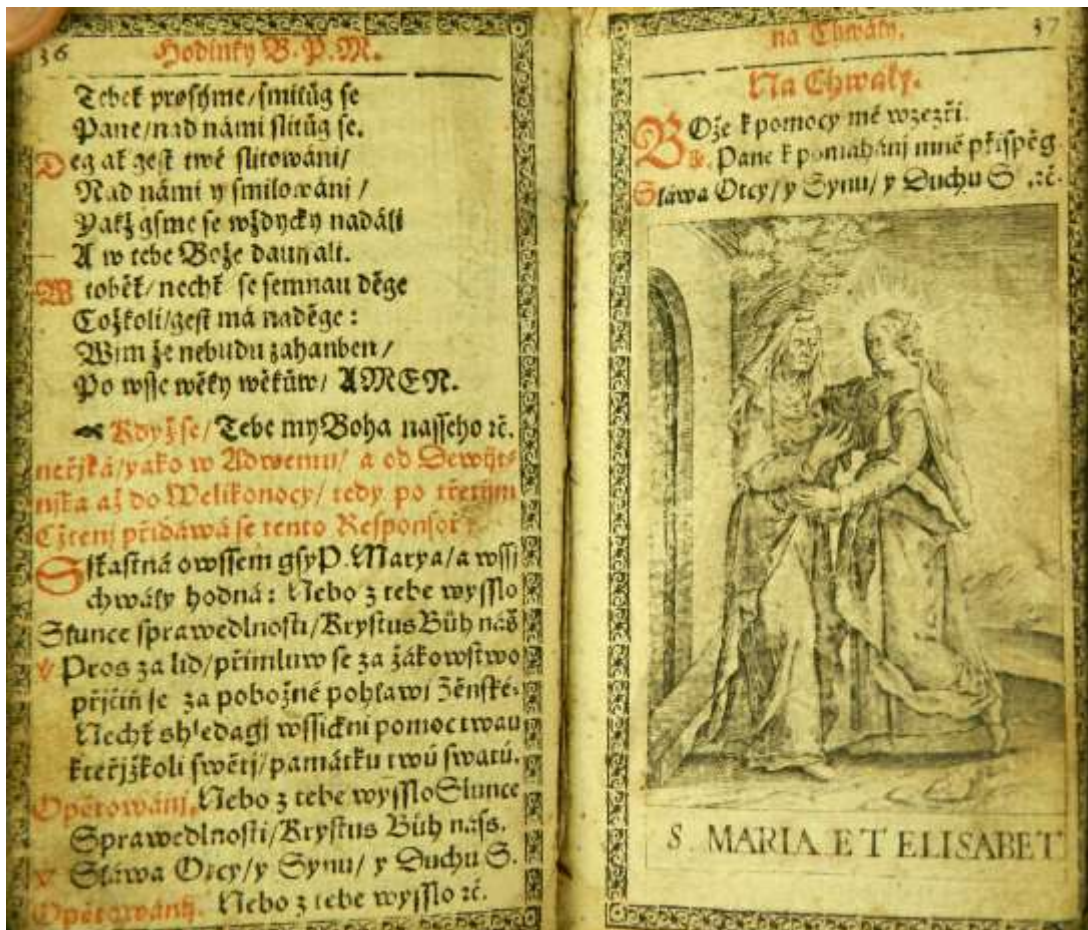 36
Hodinky B. P. M.
Tebeť prosyme/smilůg se
Pane/nad námi slitůg se.
Deg ať gest twé slitowání/
Nad námi y smilowání/
Yakž gsme se wždycky nadáli
A w tebe Bože daufali.
W toběť/nechť se semnau děge
Cožkoli/gest má naděge:
Wím že nebudu zahanben/
Po wsse wěky wěkůw/ AMEN.
Když se/ Tebe my Boha nasseho ꝛč.
neřjká/yako w Adwentu/ a od Dewijt-
njka až do Welikonocy/ tedy po třetjm
Cžtenj přidáwá se tento Responsoř:
Sstastná owssem gsy P. Marya/a wssj
chwály hodná: Nebo z tebe wysslo
Slunce sprawedlnosti/Krystus Bůh náš
℣ Pros za lid/přimluw se za žákowstwo
přičiň se za pobožné pohlawí Žěnské:
Nechť shledagj wssickni pomoc twau
kteřjžkoli swětj/památku twú swatú.
Opětowánj. Nebo z tebe wysslo Slunce
Sprawedlnosti/Krystus Bůh náss.
℣ Sláwa Otcy/y Synu/ y Duchu S.
Opětowánj. Nebo z tebe wysslo ꝛč.
na Chwály. 37
Na Chwály.
BOže k pomocy mé wzezři.
℟. Pane k pomáhánj mně přispěg
Sláwa Otcy/y Synu/ y Duchu S .ꝛč.
S MARIA ET ELISABET